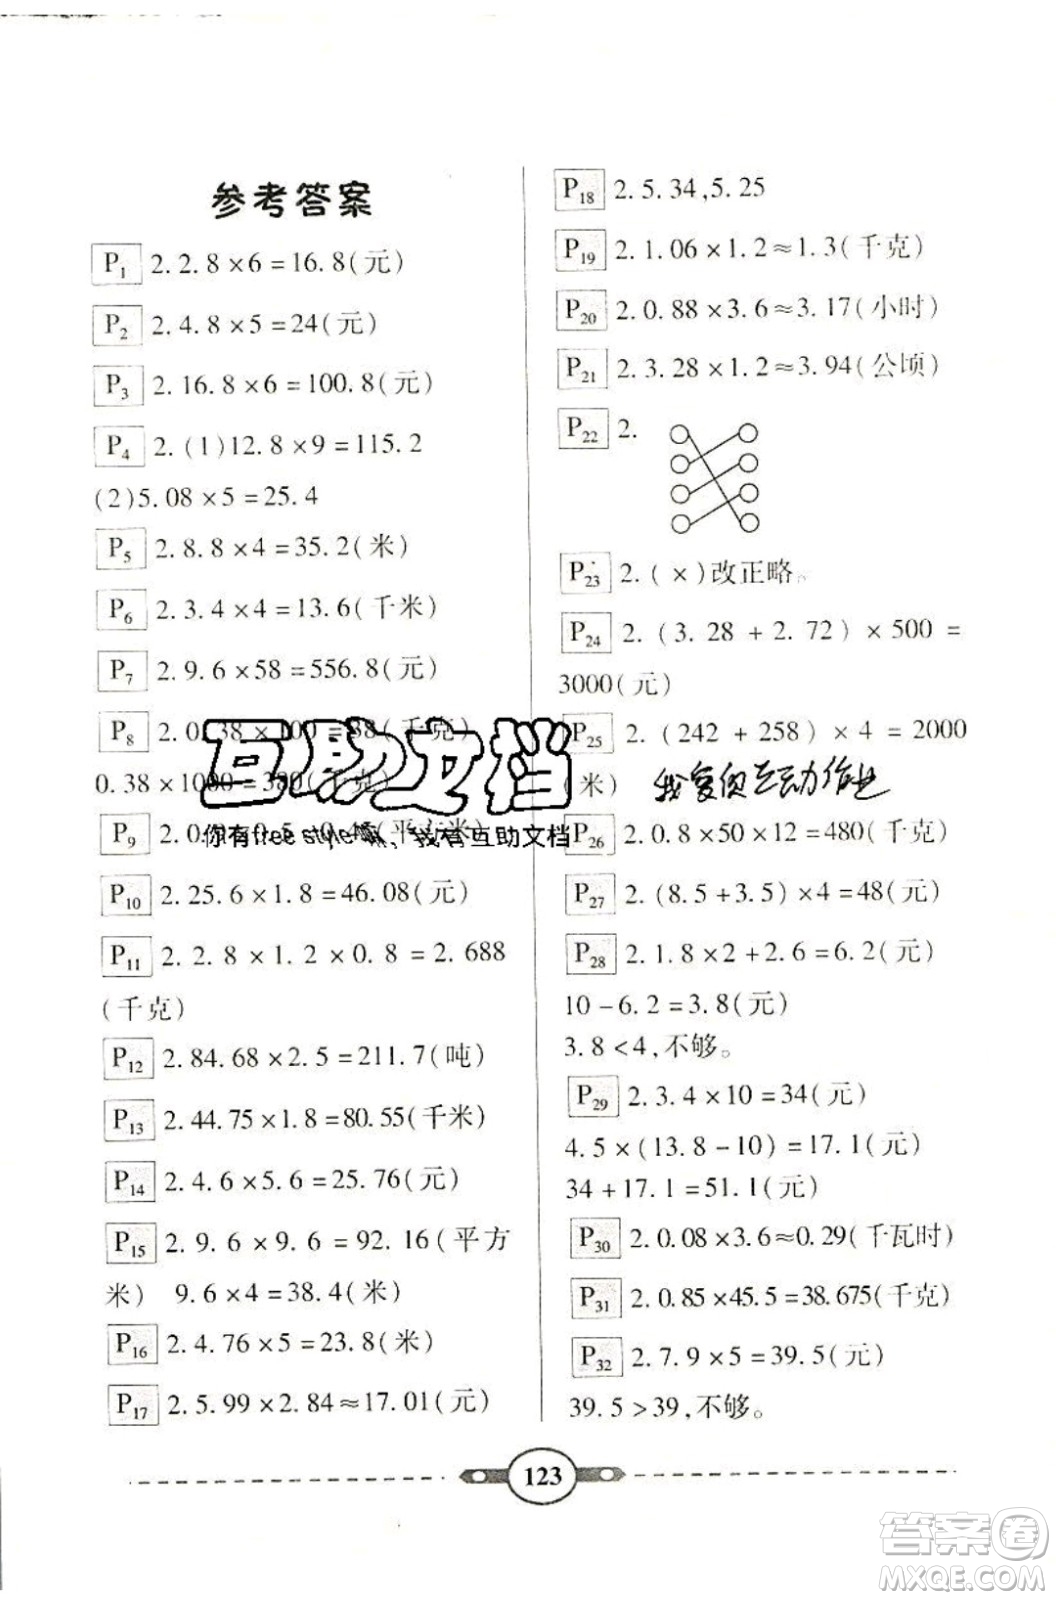 参考答案
P1 2.2.8×6=16.8(元)
P2 2.4.8×5=24(元)
P3 2.16.8×6=100.8(元)
P4 2.(1)12.8×9=115.2
(2)5.08×5=25.4
P5 2.8.8×4=35.2(米)
P6 2.3.4×4=13.6(千米)
P7 2.9.6×58=556.8(元)
P8 2.0.38×100=38(千克)
0.38×1000=380(千克)
P9 2.0.9 0.5 0.45(平方米)
P10 2.25.6×1.8=46.08(元)
P11 2.2.8×1.2×0.8=2.688
(千克)
P12 2.84.68×2.5=211.7(吨)
P13 2.44.75×1.8=80.55(千米)
P14 2.4.6×5.6=25.76(元)
P15 2.9.6×9.6=92.16(平方
米) 9.6×4=38.4(米)
P16 2.4.76×5=23.8(米)
P17 2.5.99×2.84≈17.01(元)
P18 2.5.34,5.25
P19 2.1.06×1.2≈1.3(千克)
P20 2.0.88×3.6≈3.17(小时)
P21 2.3.28×1.2≈3.94(公顷)
P22 2.
P23 2.(×)改正略。
P24 2.(3.28+2.72)×500=
3000(元)
P25 2.(242+258)×4=2000
米)
P26 2.0.8×50×12=480(千克)
P27 2.(8.5+3.5)×4=48(元)
P28 2.1.8×2+2.6=6.2(元)
10-6.2=3.8(元)
3.8<4,不够。
P29 2.3.4×10=34(元)
4.5×(13.8-10)=17.1(元)
34+17.1=51.1(元)
P30 2.0.08×3.6≈0.29(千瓦时)
P31 2.0.85×45.5=38.675(千克)
P32 2.7.9×5=39.5(元)
39.5>39,不够。
互助文档
你有free style嘛、我有互助文档
我爱你运动作业
123
答案圈
MXQE.COM